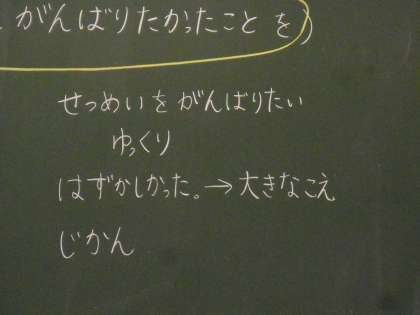 がんばりたかったことを)
せつめいをがんばりたい
ゆっくり
はずかしかった。→大きなこえ
じかん